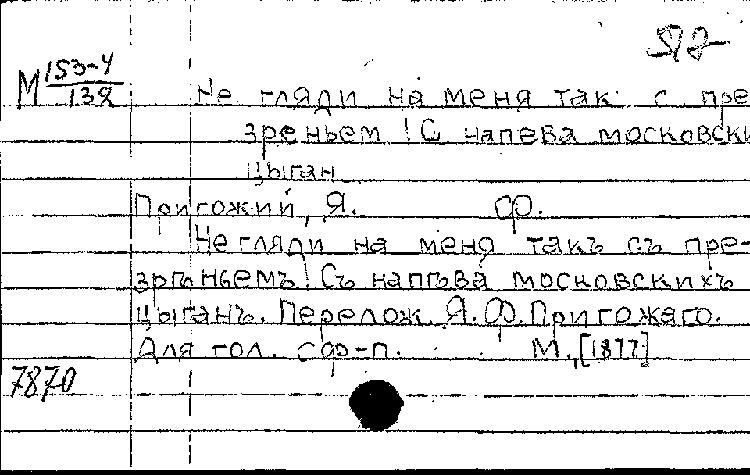 М 153-4
138
Не гляди на меня так с пре
зреньем! С напева московски
цыган
Пригожий, Я. Ф.
Не гляди на меня такъ съ пре-
зрѣньемъ! Съ напѣва московскихъ
цыганъ. Перелож. Я. Ф. Пригожаго.
Для гол. с ф-п. М., [1877]
7870